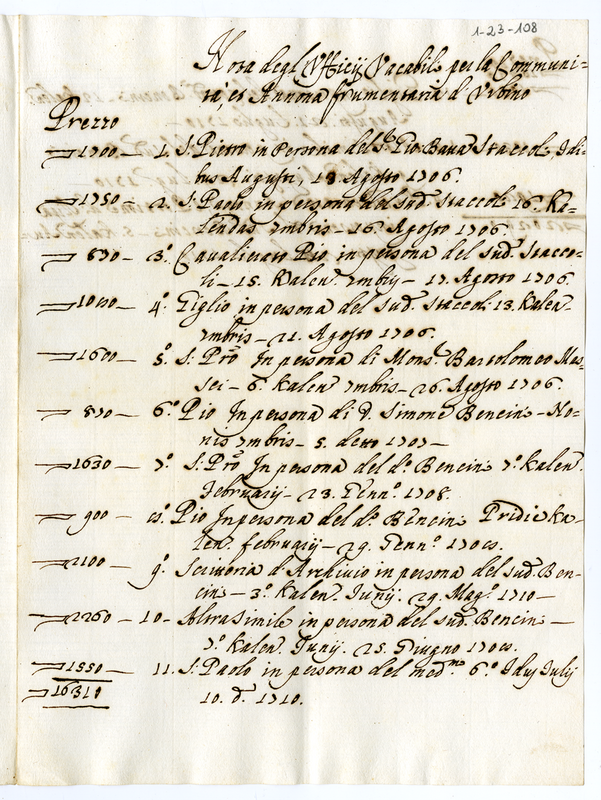 1-23-108
Nota degl'Ufficij Vacabili per la Communi=
tà, et Annona frumentaria d'Urbino
Prezzo
1700 — 1. S. Pietro in Persona del Sr. Gio Bava Staccoli Idi=
bus Augusti, 13 Agosto 1706.
1750 — 2. S. Paolo in persona del sud. Staccoli 16. Ka=
lendas 7mbris — 16. Agosto 1706.
870 — 3.° Cavalierato Pio in persona del sud. Stacco=
li — 15. Kalen. 7mbris — 17. Agosto 1706.
1040 — 4.° Giglio in persona del sud. Staccoli 13. Kalen.
7mbris — 21. Agosto 1706.
1600 — 5.° S. Pro In persona di Mons. Bartolomeo Mas=
sei — 6. Kalen 7mbris — 26. Agosto 1706.
870 — 6.° Pio In persona di D. Simone Bencini — No=
nis 7mbris — 5. detto 1707 —
1630 — 7.° S. Pro In persona del d.° Bencini 7.° Kalen.
Februarij — 23. Genn.° 1708.
900 — 8. Pio In persona del d.° Bencini Pridie Ka=
len. februarij — 29. Genn.° 1708.
2100 — 9.° Scrittoria d'Archivio in persona del sud. Ben=
cini — 3.° Kalen. Junij. 29. Mag. 1710 —
2260 — 10 — Altra Simile in persona del sud. Bencini —
7.° Kalen. Junij. 25. Giugno 1708.
1550 — 11. S. Paolo in persona del med.mo 6.° Idus Julij
16310 10. d. 1710.